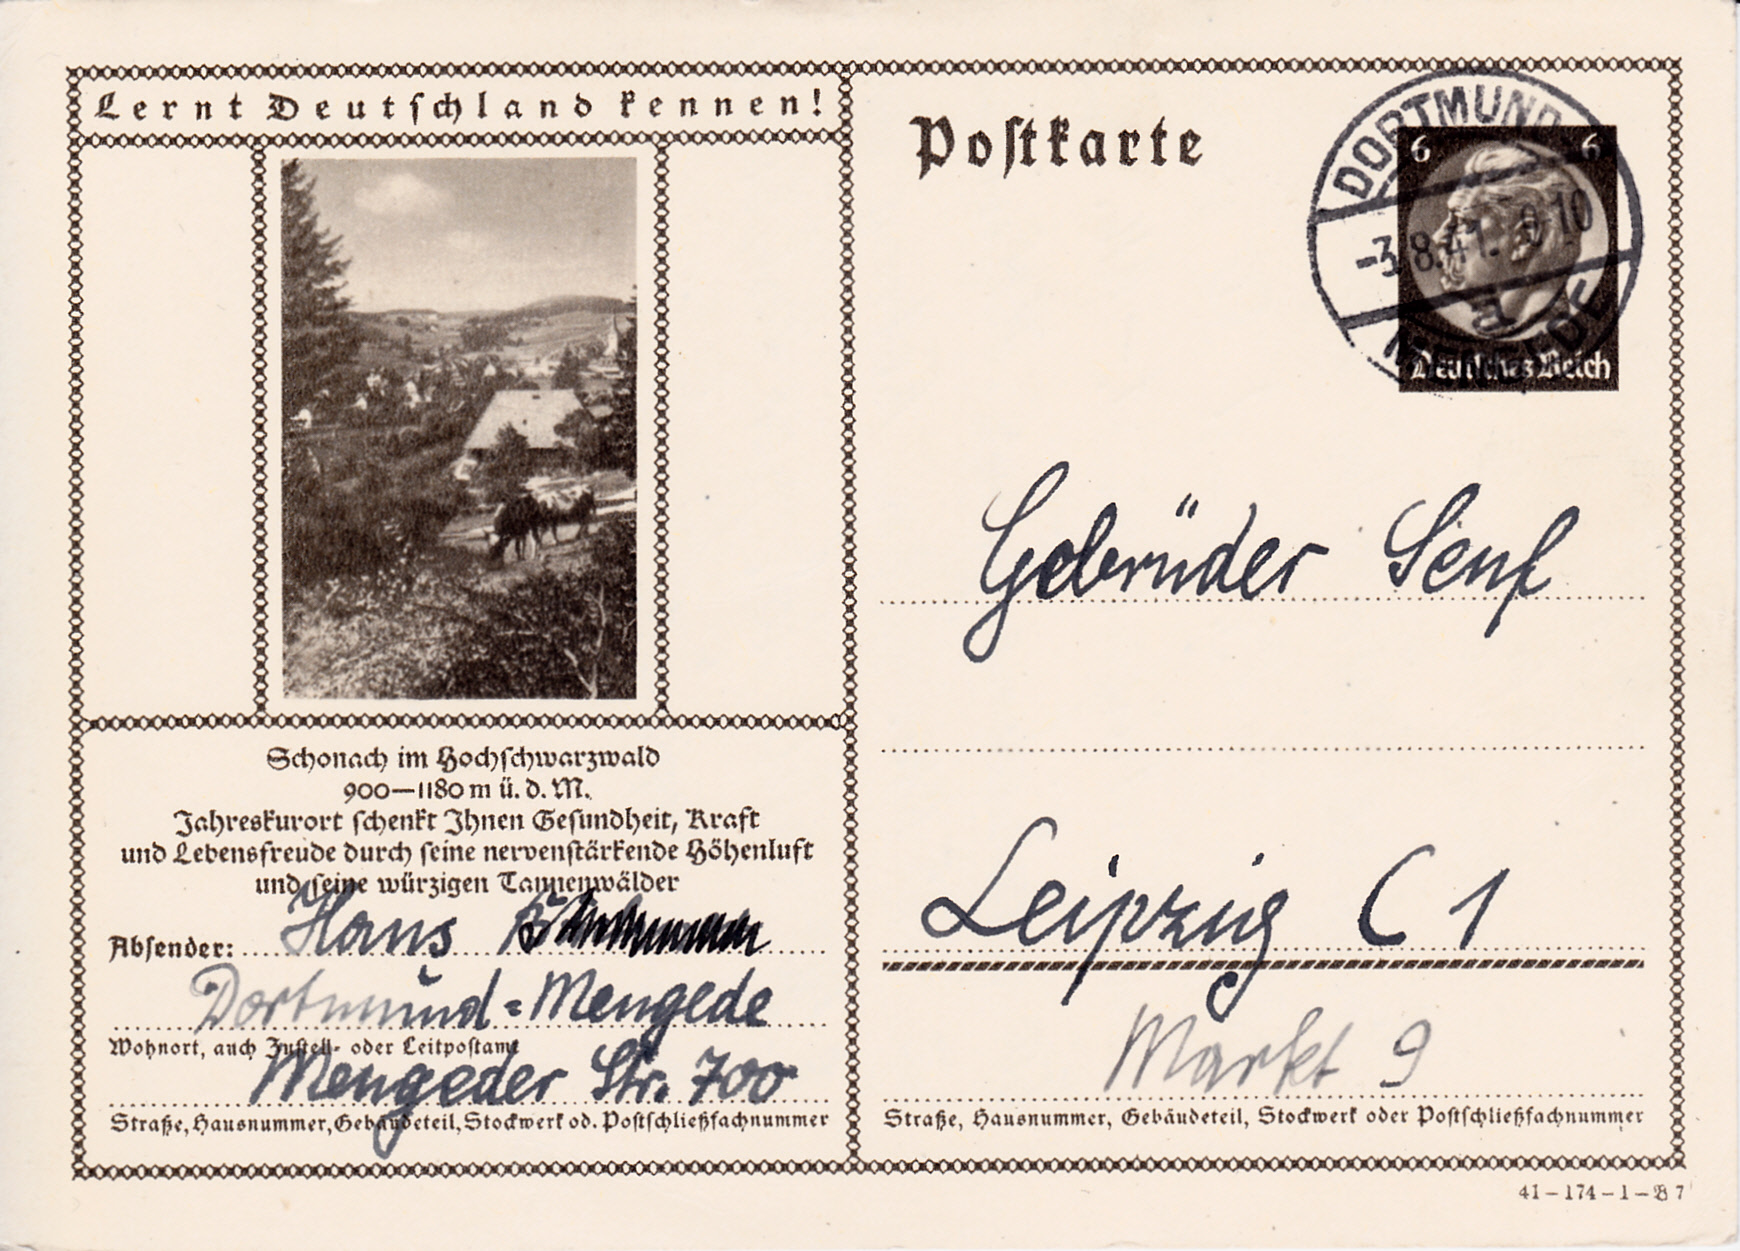 Lernt Deutschland kennen!
Schonach im Hochschwarzwald
900—1180 m ü. d. M.
Jahreskurort schenkt Ihnen Gesundheit, Kraft
und Lebensfreude durch seine nervenstärkende Höhenluft
und seine würzigen Tannenwälder
Absender: Hans
Dortmund-Mengede
Wohnort, auch Zustell- oder Leitpostamt
Mengeder Str. 700
Straße, Hausnummer, Gebäudeteil, Stockwerk od. Postschließfachnummer
Postkarte
6 6
Deutsches Reich
DORTMUND
-3.8.41.
a
MENGEDE
Gebrüder Senf
Leipzig C 1
Markt 9
Straße, Hausnummer, Gebäudeteil, Stockwerk oder Postschließfachnummer
41-174-1-B 7